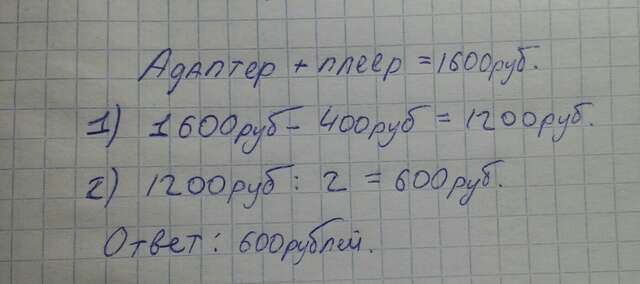 Адаптер + плеер = 1600руб.
1) 1600руб - 400руб = 1200руб.
2) 1200руб : 2 = 600руб.
Ответ: 600рублей.